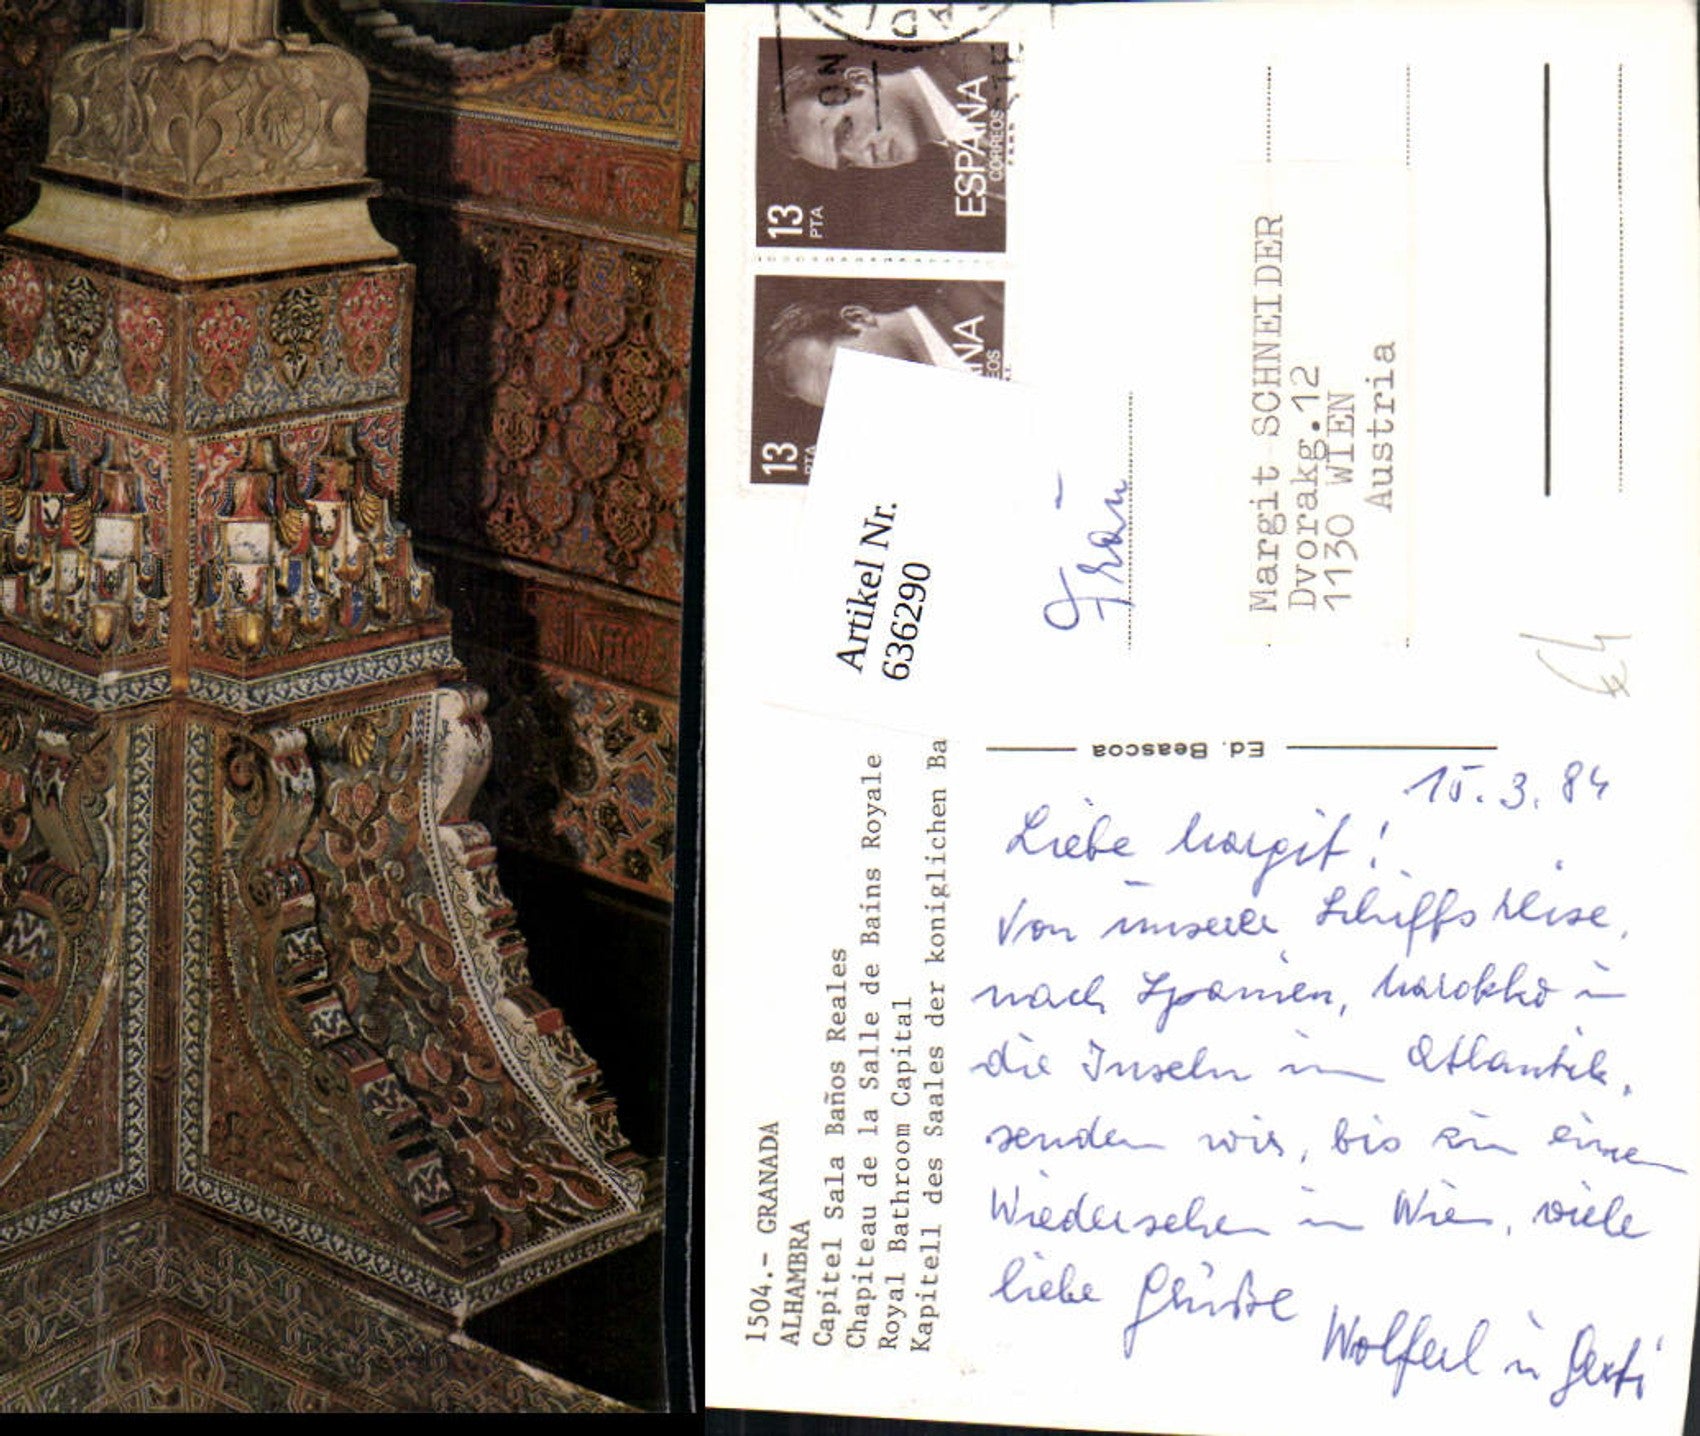 1504.- GRANADA
ALHAMBRA
Capitel Sala Baños Reales
Chapiteau de la Salle de Bains Royale
Royal Bathroom Capital
Kapitell des Saales der koniglichen Ba
Ed. Beascoa
15.3.84
Liebe Margit!
Von unserer Schiffsreise,
nach Spanien, Marokko u
die Inseln im Atlantik,
senden wir, bis zum einen
Wiedersehen in Wien, viele
liebe Grüße
Wolferl u Gerti
13
PTA
ESPAÑA
CORREOS
13
PTA
Artikel Nr.
636290
Frau
Margit SCHNEIDER
Dvorakg.12
1130 WIEN
Austria